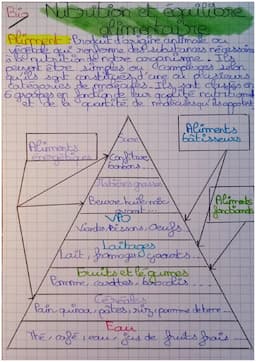 Bio
Nutrition et équilibre
alimentaire
Aliment: Produit d'origine animale ou
végétale qui renferme des substances nécessaires
à la nutrition de notre organisme. Ils
peuvent être simples ou complexes selon
qu'ils sont constitués d'une ou plusieurs
catégories de molécules. Ils sont classés en
6 groupes en fonction de leur qualité nutritionnel
et de la quantité de molécules qu'ils apportent
Aliments
énergétiques
Aliments
bâtisseurs
Aliments
fonctionnels
Sucre
Confiture
bonbons...
Matières grasses
Beurre huile
VPO
Viandes Poissons Oeufs
Laitages
Lait, fromages, yaourts...
Fruits et légumes
Pomme, carottes, brocolis...
Céréales
Pain, quinoa, pâtes, riz, pomme de terre...
Eau
Thé, café, eau, jus de fruits frais